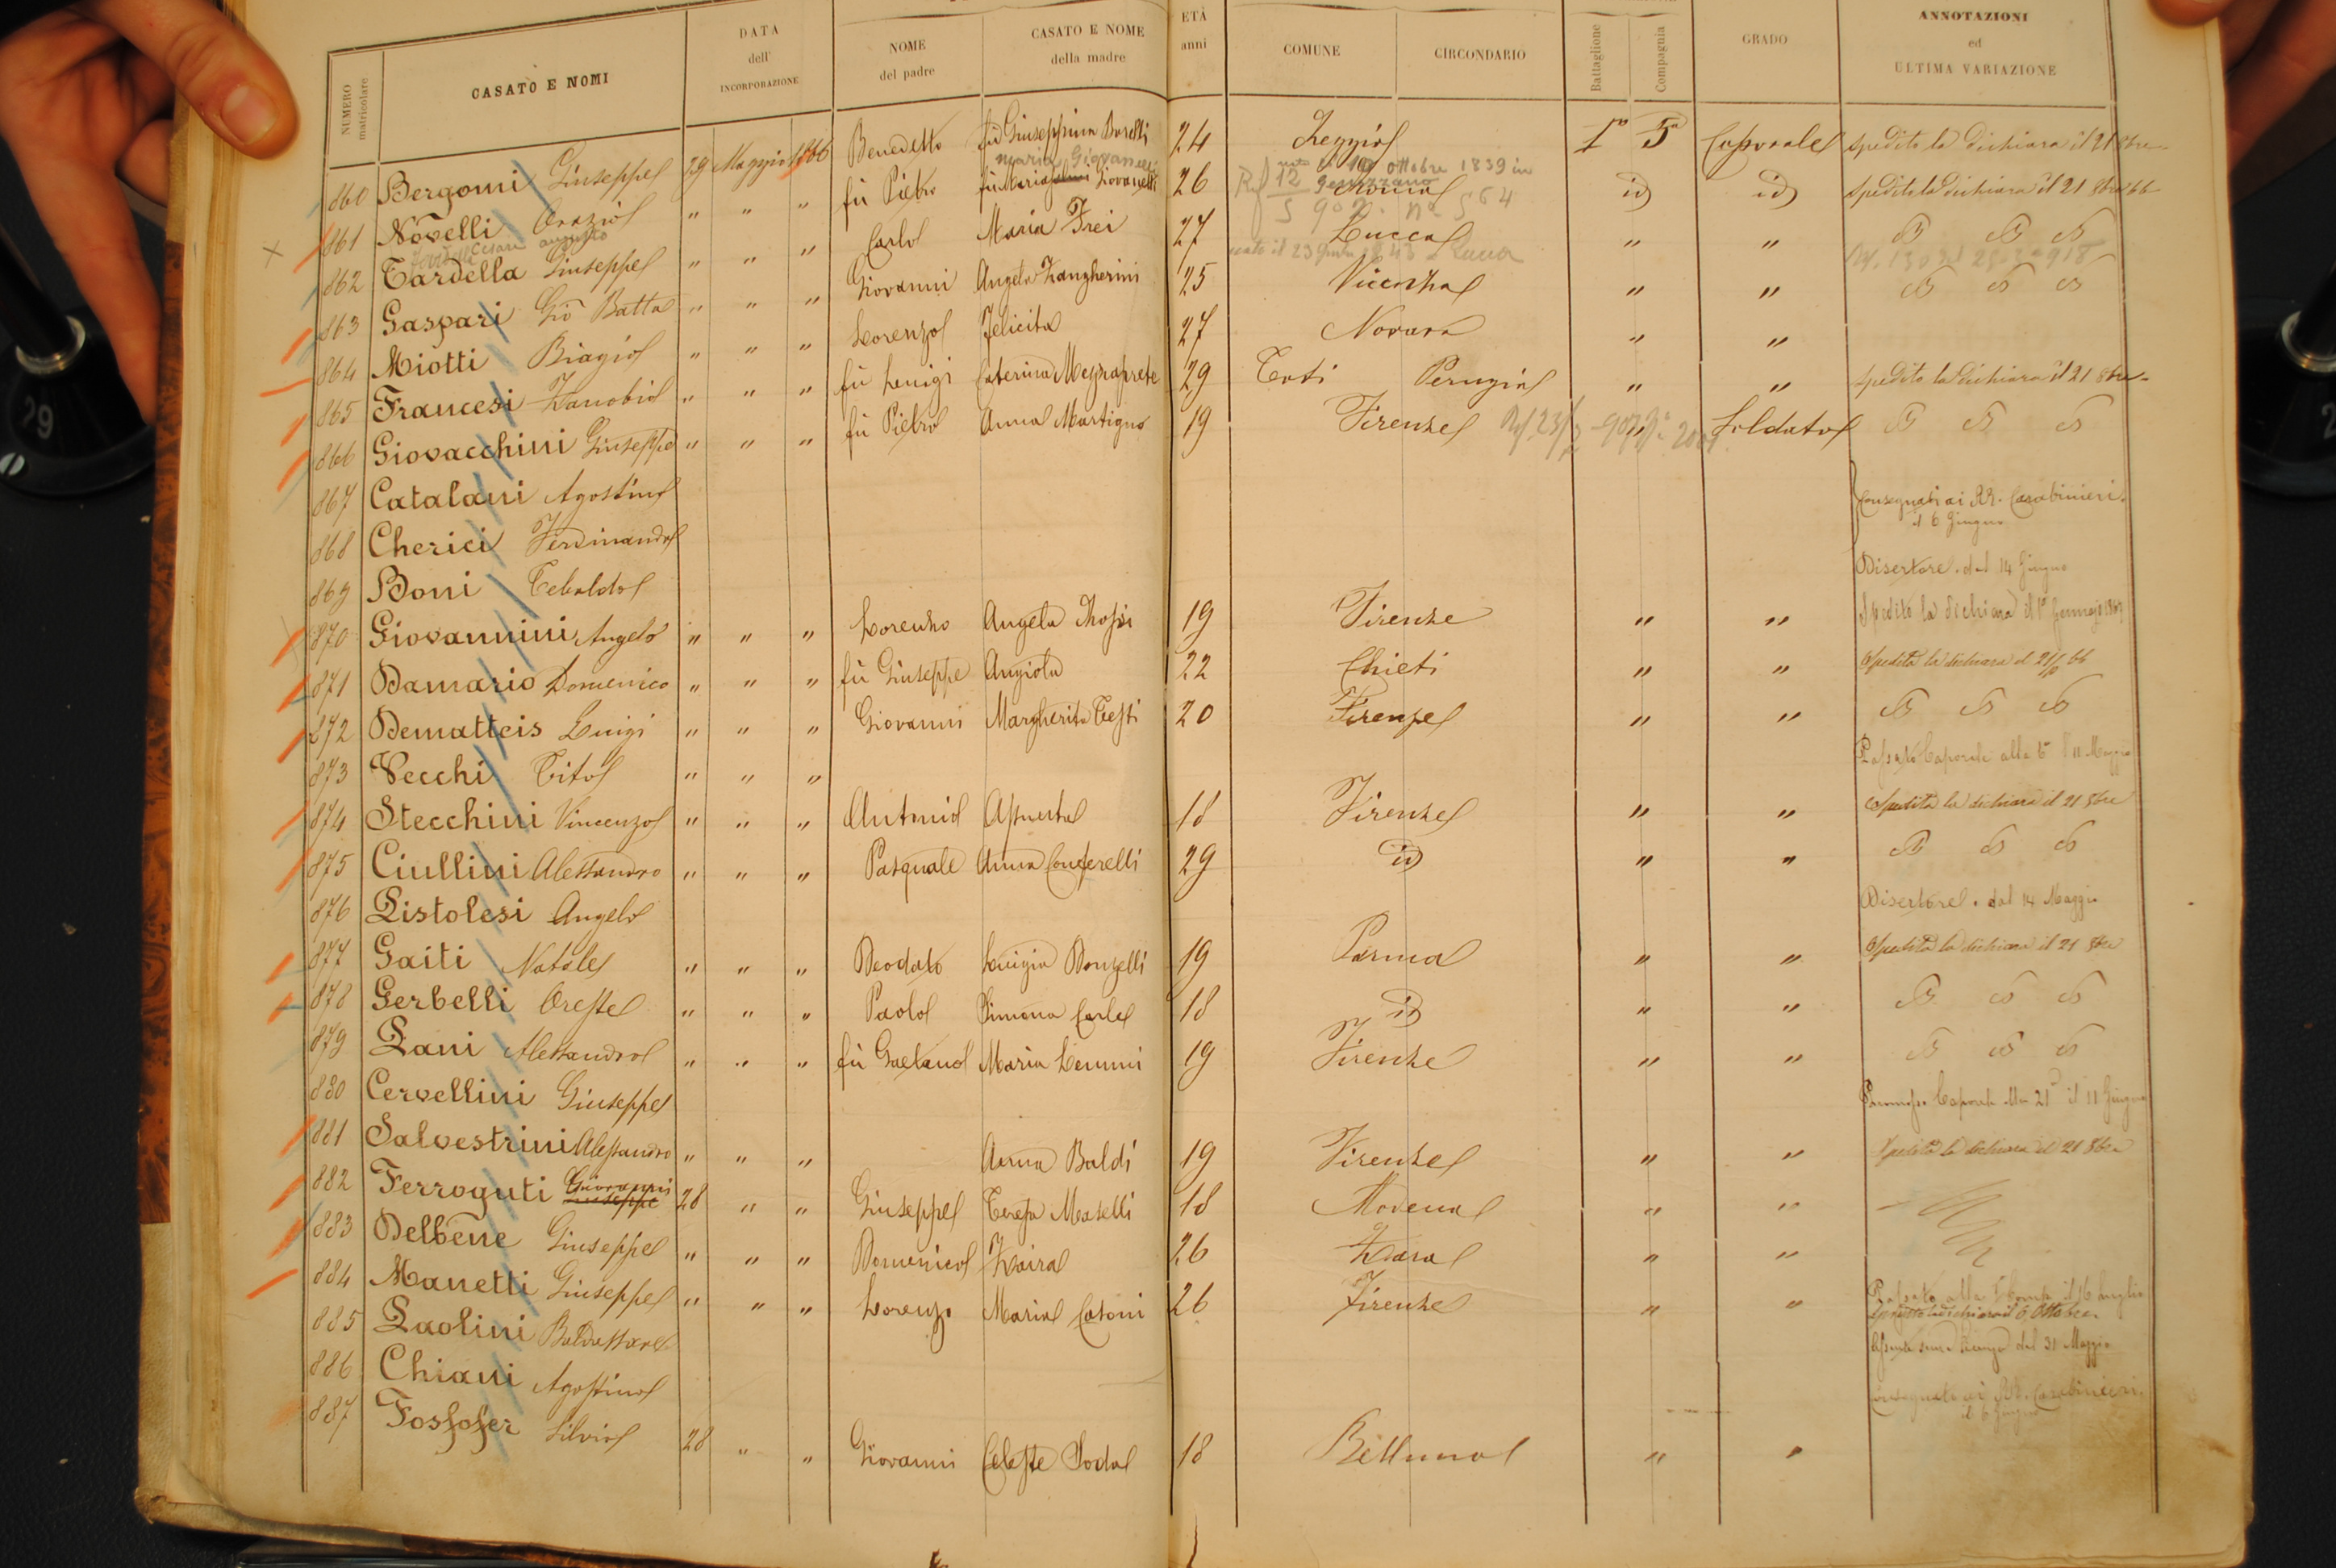 NUMERO matricolare CASATO E NOMI DATA dell' INCORPORAZIONE NOME del padre CASATO E NOME della madre ETÀ anni COMUNE CIRCONDARIO Battaglione Compagnia GRADO ANNOTAZIONI ed ULTIMA VARIAZIONE
860 Bergomi Giuseppe 29 Maggio 1866 Benedetto fu Giuseppina Boselli 24 Reggio 1º 5ª Caporale Spedito la dichiara il 21 8bre
maria Giovanelli nato il 10 ottobre 1839 in Genazzano
861 Novelli Orazio " " " fu Pietro fu Maria Giovanelli 26 Roma id id Spedito la dichiara il 21 8bre 66
Rf 12 5 902 nº 564
Cesare augusto
862 Tardella Giuseppe " " " Carlo Maria Frei 27 Lucca " "
nato il 23 1843 Lucca
863 Gaspari Gio Batta " " " Giovanni Angela Zangherini 25 Vicenza " "
864 Miotti Biagio " " " Lorenzo Felicita 27 Novara " "
865 Francesi Zanobio " " " fu Luigi Caterina Mezzaprete 29 Todi Perugia " " Spedito la dichiara il 21 8bre
866 Giovacchini Giuseppe " " " fu Pietro Anna Martigno 19 Firenze Soldato
867 Catalani Agostino Consegnati ai RR. Carabinieri
il 6 Giugno
868 Cherici Ferdinando
869 Boni Tebaldo Disertore dal 14 Giugno
870 Giovannini Angelo " " " Lorenzo Angela Rossi 19 Firenze " " Spedito la dichiara il 1º Gennajo 1867
871 Damario Domenico " " " fu Giuseppe Angiola 22 Chieti " " Spedita la dichiara il 21/8 66
872 Dematteis Luigi " " " Giovanni Margherita Testi 20 Firenze " "
873 Vecchi Tito " " " Passato Caporale alla 6ª 11 Maggio
874 Stecchini Vincenzo " " " Antonio Assunta 18 Firenze " " Spedita la dichiara il 21 8bre
875 Ciullini Alessandro " " " Pasquale Anna 29 id " "
876 Pistolesi Angelo Disertore dal 14 Maggio
877 Gaiti Natale " " " Deodato Luigia Donzelli 19 Parma " " Spedita la dichiara il 21 8bre
878 Gerbelli Oreste " " " Paolo Simona Carle 18 id " "
879 Pani Alessandro " " " fu Gaetano Maria Lemmi 19 Firenze " "
880 Cervellini Giuseppe Promosso Caporale alla 21ª il 11 Giugno
881 Salvestrini Alessandro " " " Anna Baldi 19 Firenze " " Spedita la dichiara il 21 8bre
882 Ferroguti Giovanni Giuseppe 28 " " Giuseppe Teresa Maselli 18 Modena " "
883 Delbene Giuseppe " " " Domenico Zaira 26 Zara " "
884 Manetti Giuseppe " " " Lorenzo Maria Catoni 26 Firenze " " Passato alla il 16 luglio
Spedito la dichiara il 6 Ottobre
885 Paolini Baldassare Assente senza licenza dal 31 Maggio
886 Chiani Agostino Consegnato ai RR. Carabinieri
il 6 Giugno
887 Fosfofer Silvio 28 " " Giovanni Celeste Soda 18 Belluno " "